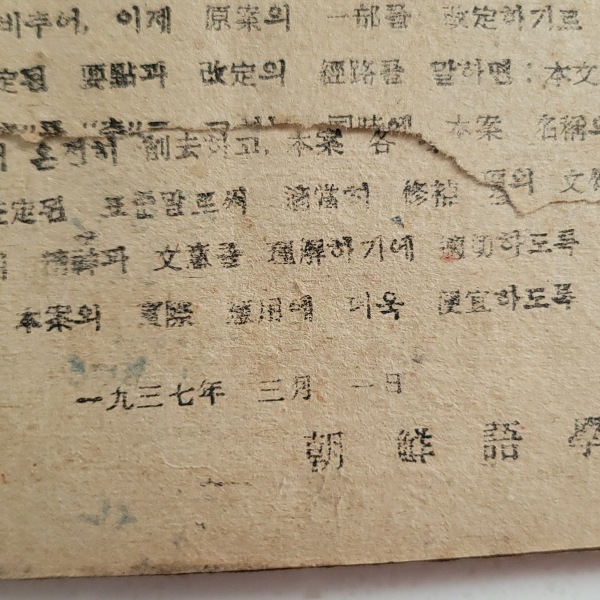 비추어, 이제 原案의 一部를 改定하기로
定된 要點과 改定의 經路를 말하면: 本文
本案 名稱의
온전히 削去하고, 本案 各
定된 표준말로써 適當히 修補 文
과 文意를 理解하기에 適切하도록
本案의 實際 應用에 더욱 便宜하도록
一九三七年 三月 一日
朝鮮語學